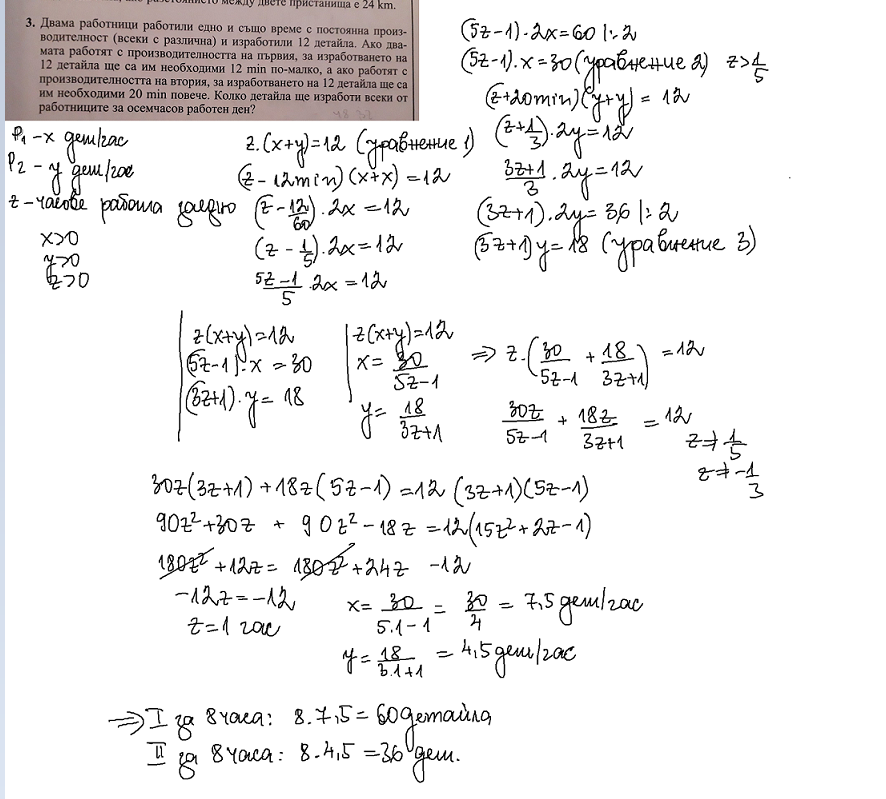 между двете пристанища е 24 km.
3. Двама работници работили едно и също време с постоянна произ-
водителност (всеки с различна) и изработили 12 детайла. Ако два-
мата работят с производителността на първия, за изработването на
12 детайла ще са им необходими 12 min по-малко, а ако работят с
производителността на втория, за изработването на 12 детайла ще са
им необходими 20 min повече. Колко детайла ще изработи всеки от
работниците за осемчасов работен ден?
P₁ - x дет/час
P₂ - y дет/час
z - часове работа заедно
x>0
y>0
z>0
z.(x+y)=12 (уравнение 1)
(z-12min)(x+x)=12
(z-12/60).2x=12
(z-1/5).2x=12
5z-1/5 .2x=12
(5z-1).2x=60 |:2
(5z-1).x=30 (уравнение 2) z>1/5
(z+20min)(y+y)=12
(z+1/3).2y=12
3z+1/3 .2y=12
(3z+1).2y=36 |:2
(3z+1)y=18 (уравнение 3)
z(x+y)=12
(5z-1).x=30
(3z+1).y=18
z(x+y)=12
x=30/5z-1
y=18/3z+1
=> z.(30/5z-1 + 18/3z+1)=12
30z/5z-1 + 18z/3z+1 =12
z≠1/5
z≠-1/3
30z(3z+1)+18z(5z-1)=12(3z+1)(5z-1)
90z²+30z + 90z²-18z=12(15z²+2z-1)
180z²+12z=180z²+24z -12
-12z=-12
z=1 час
x=30/5.1-1=30/4=7,5 дет/час
y=18/3.1+1=4,5 дет/час
=> I за 8 часа: 8.7,5=60 детайла
II за 8 часа: 8.4,5=36 дет.